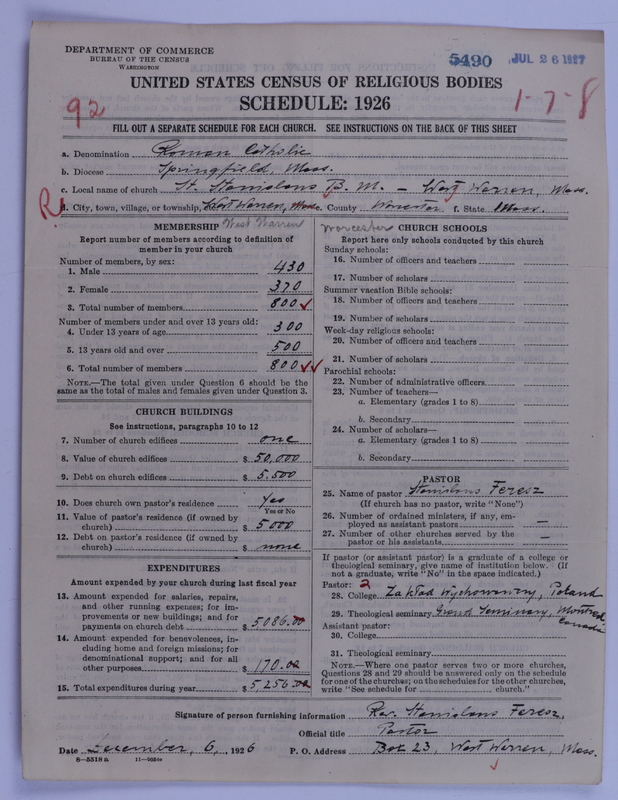 DEPARTMENT OF COMMERCE
BUREAU OF THE CENSUS
WASHINGTON
5490 JUL 26 1927
UNITED STATES CENSUS OF RELIGIOUS BODIES
SCHEDULE: 1926
92
1-7-8
FILL OUT A SEPARATE SCHEDULE FOR EACH CHURCH. SEE INSTRUCTIONS ON THE BACK OF THIS SHEET
a. Denomination Roman Catholic
b. Diocese Springfield, Mass.
c. Local name of church St. Stanislaus B. M. – West Warren, Mass.
R
d. City, town, village, or township, West Warren, e. County Worcester f. State Mass.
MEMBERSHIP West Warren
Report number of members according to definition of
member in your church
Number of members, by sex:
1. Male 430
2. Female 370
3. Total number of members 800 ✓
Number of members under and over 13 years old:
4. Under 13 years of age 300
5. 13 years old and over 500
6. Total number of members 800 ✓✓
NOTE.—The total given under Question 6 should be the
same as the total of males and females given under Question 3.
CHURCH BUILDINGS
See instructions, paragraphs 10 to 12
7. Number of church edifices one
8. Value of church edifices $ 50,000
9. Debt on church edifices $ 5.500
10. Does church own pastor's residence Yes
Yes or No
11. Value of pastor's residence (if owned by
church) $ 5000
12. Debt on pastor's residence (if owned by
church) $ none
EXPENDITURES
Amount expended by your church during last fiscal year
13. Amount expended for salaries, repairs,
and other running expenses; for im-
provements or new buildings; and for
payments on church debt $ 5086.00
14. Amount expended for benevolences, in-
cluding home and foreign missions; for
denominational support; and for all
other purposes $ 170.00
15. Total expenditures during year $ 5,256.00
Worcester CHURCH SCHOOLS
Report here only schools conducted by this church
Sunday schools:
16. Number of officers and teachers
17. Number of scholars
Summer vacation Bible schools:
18. Number of officers and teachers
19. Number of scholars
Week-day religious schools:
20. Number of officers and teachers
21. Number of scholars
Parochial schools:
22. Number of administrative officers
23. Number of teachers—
a. Elementary (grades 1 to 8)
b. Secondary
24. Number of scholars—
a. Elementary (grades 1 to 8)
b. Secondary
PASTOR
25. Name of pastor Stanislaus Feresz
(If church has no pastor, write "None")
26. Number of ordained ministers, if any, em-
ployed as assistant pastors —
27. Number of other churches served by the
pastor or his assistants —
If pastor (or assistant pastor) is a graduate of a college or
theological seminary, give name of institution below. (If
not a graduate, write "No" in the space indicated.)
Pastor: 2
28. College Zakład Wychowawczy, Poland
29. Theological seminary Grand Seminary, Montreal
Canada
Assistant pastor:
30. College
31. Theological seminary
NOTE.—Where one pastor serves two or more churches,
Questions 28 and 29 should be answered only on the schedule
for one of the churches; on the schedules for the other churches,
write "See schedule for church."
Signature of person furnishing information Rev. Stanislaus Feresz,
Official title Pastor
Date December, 6, 1926 P. O. Address Box 23, West Warren, Mass.
8—5518 a